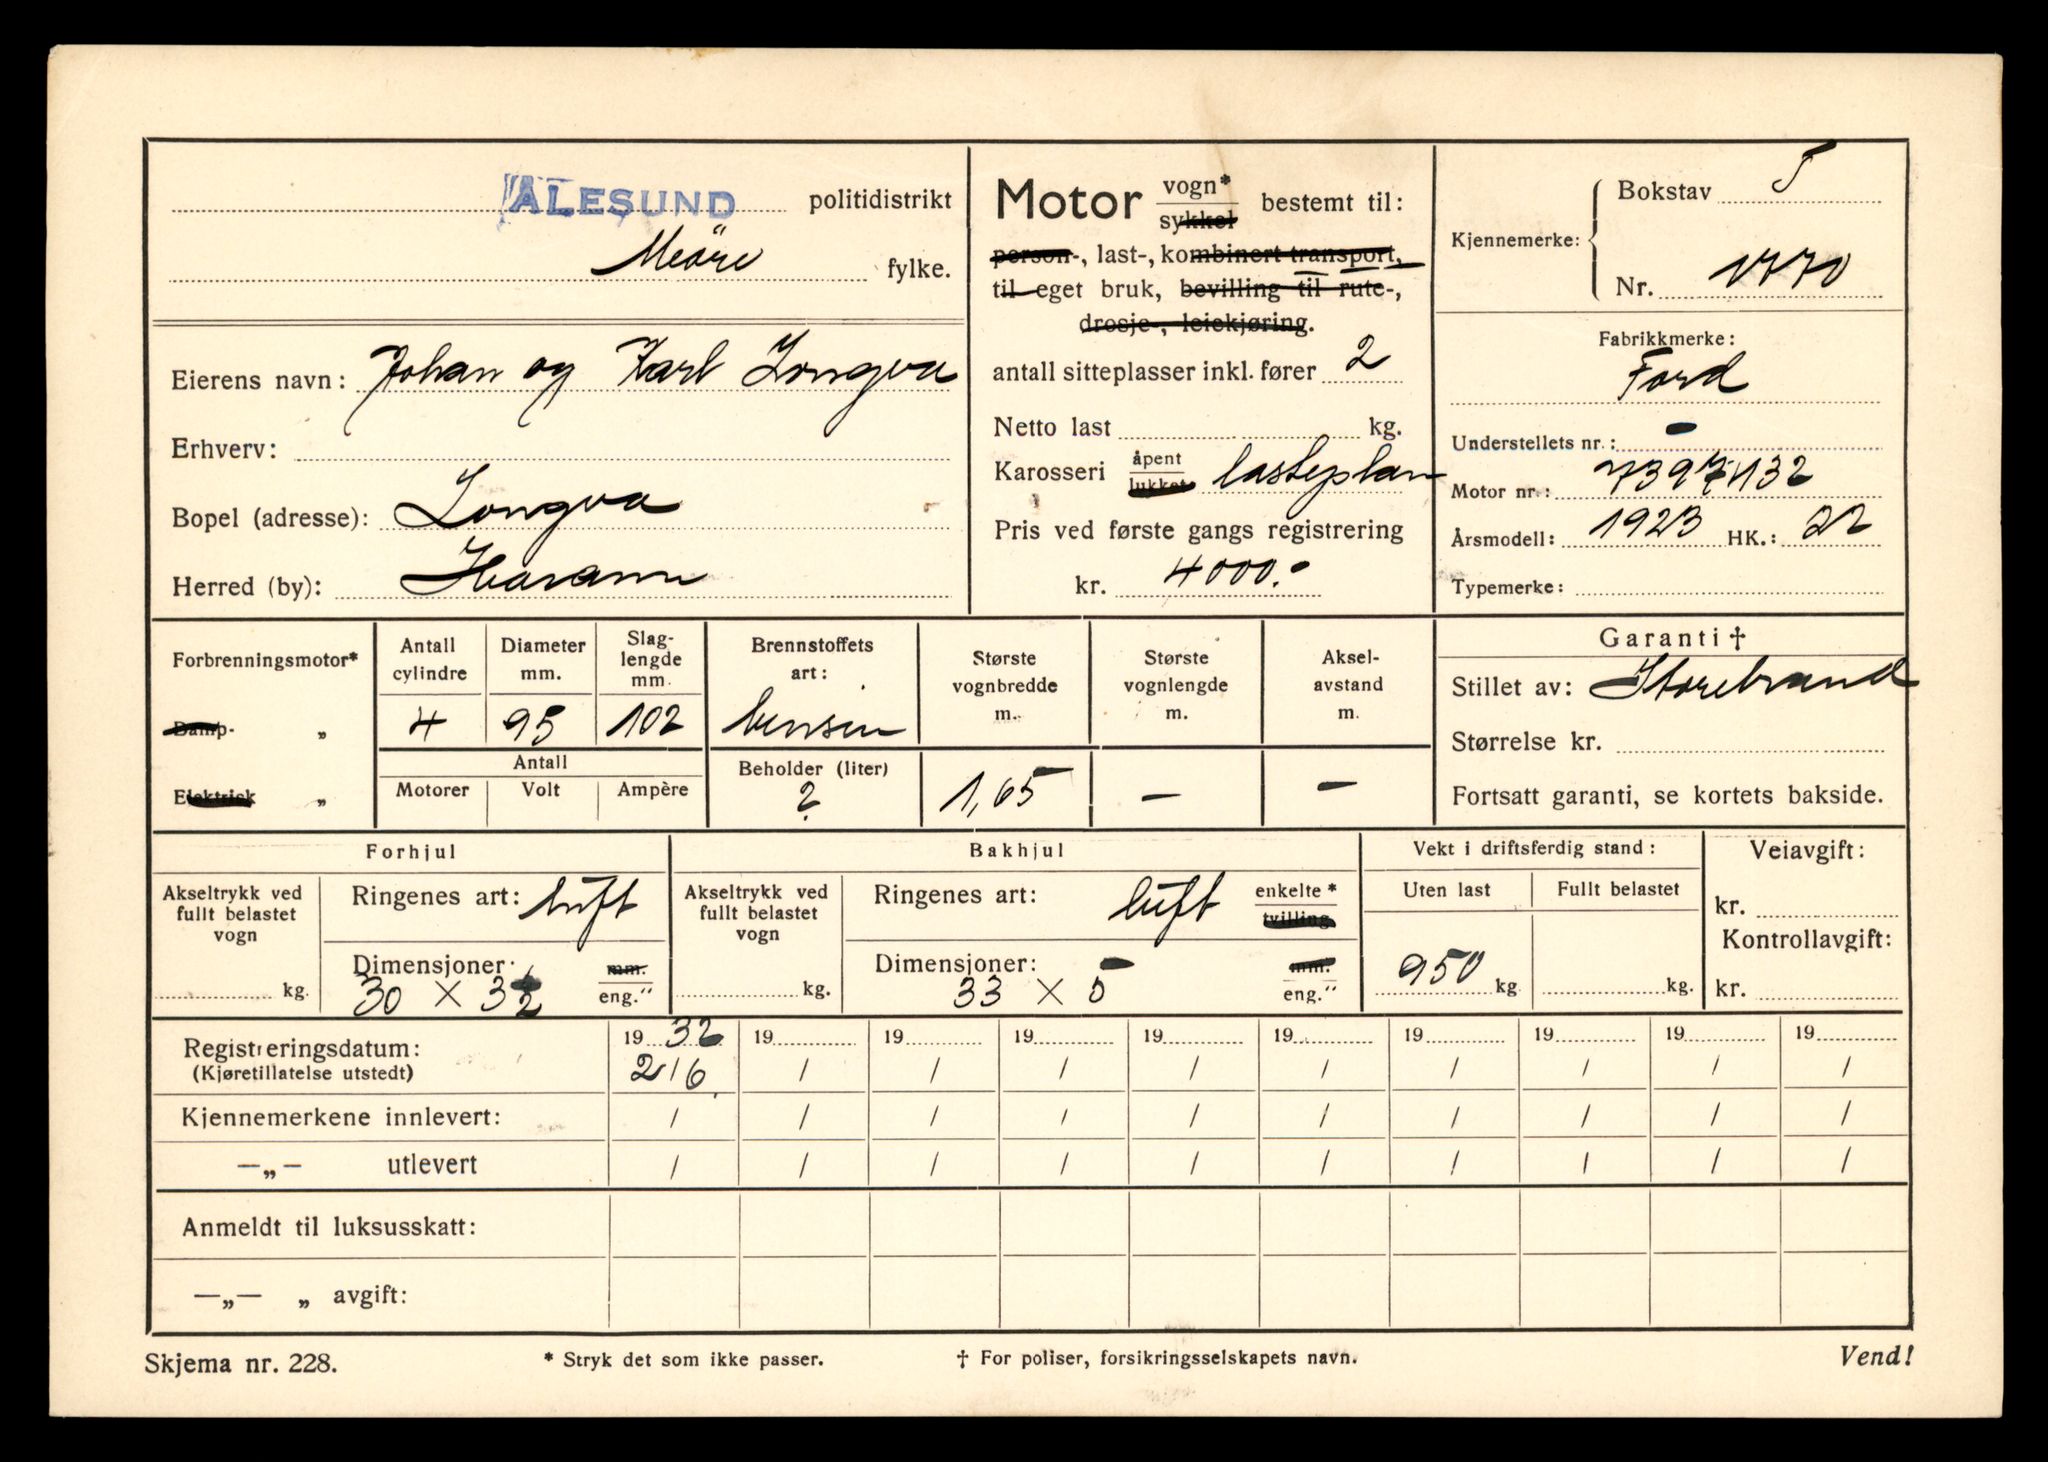 ÅLESUND politidistrikt
Möre fylke.
Eierens navn: Johan og Karl Longva
Erhverv:
Bopel (adresse): Longva
Herred (by): Haram
Motor vogn* sykkel bestemt til:
person-, last-, kombinert transport,
til eget bruk, bevilling til rute-,
drosje-, leiekjøring.
antall sitteplasser inkl. fører 2
Netto last kg.
Karosseri åpent lukket lasteplan
Pris ved første gangs registrering
kr. 4000.-
Kjennemerke: Bokstav T
Nr. 1770
Fabrikkmerke:
Ford
Understellets nr.: -
Motor nr.: 7397132
Årsmodell: 1923 HK.: 22
Typemerke:
Forbrenningsmotor*
Damp- „
Elektrisk „
Antall cylindre
4
Diameter mm.
95
Slaglengde mm.
102
Antall
Motorer Volt Ampère
Brennstoffets art:
bensin
Beholder (liter)
?
Største vognbredde m.
1,65
Største vognlengde m.
—
Akselavstand m.
—
Garanti †
Stillet av: Storebrand
Størrelse kr.
Fortsatt garanti, se kortets bakside.
Forhjul
Akseltrykk ved fullt belastet vogn
kg.
Ringenes art: luft
Dimensjoner: 30 × 3½ mm. eng."
Bakhjul
Akseltrykk ved fullt belastet vogn
kg.
Ringenes art: luft enkelte* tvilling
Dimensjoner: 33 × 5 mm. eng."
Vekt i driftsferdig stand:
Uten last Fullt belastet
950 kg. kg.
Veiavgift:
kr.
Kontrollavgift:
kr.
19 32 19 19 19 19 19 19 19 19 19
Registreringsdatum: 2/6 / / / / / / / / /
(Kjøretillatelse utstedt)
Kjennemerkene innlevert: / / / / / / / / / /
—„— utlevert / / / / / / / / / /
Anmeldt til luksusskatt:
—„— „ avgift:
Skjema nr. 228. * Stryk det som ikke passer. † For poliser, forsikringsselskapets navn. Vend!